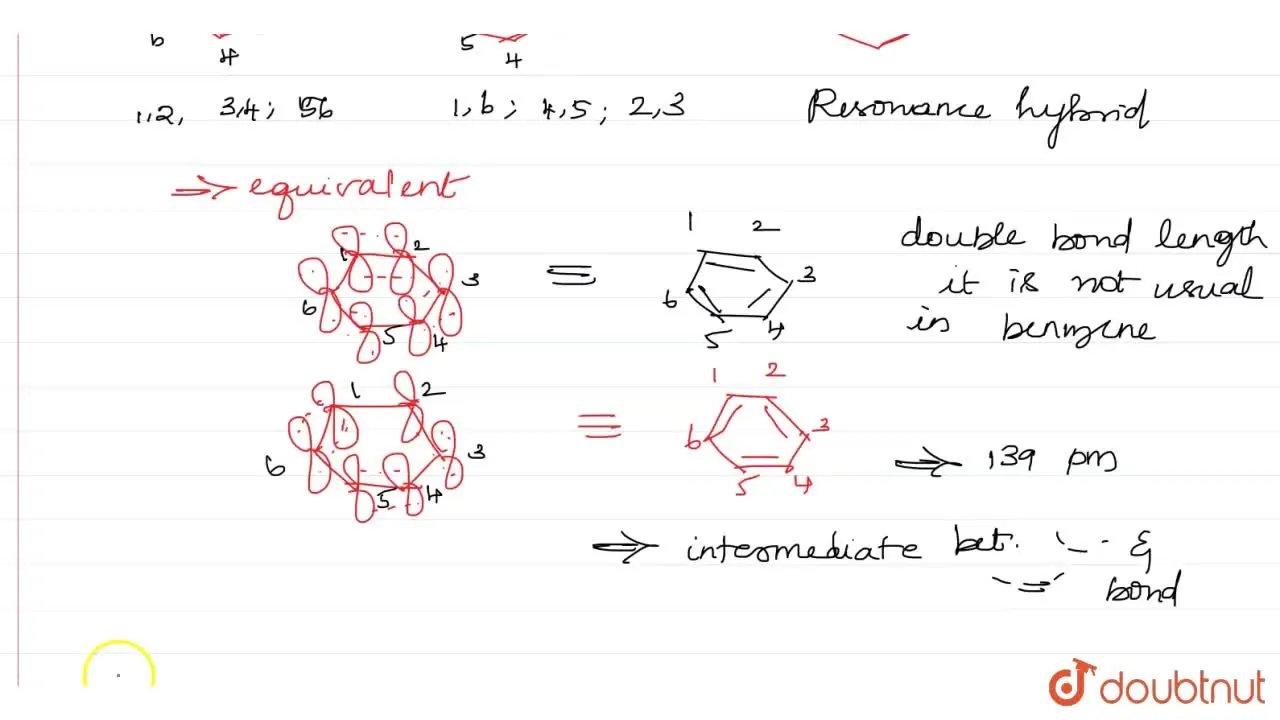 6 4 5 4
1,2, 3,4; 56 1,6; 4,5; 2,3 Resonance hybrid
⇒ equivalent
1 2 3 4 5 6 ≡ 1 2 3 4 5 6
double bond length
it is not usual
in benzene
1 2 3 4 5 6 ≡ 1 2 3 4 5 6
⇒ 139 pm
⇒ intermediate bet. - &
= bond
doubtnut